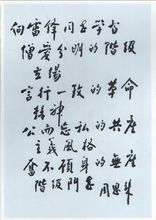 向雷鋒同志學習
憎愛分明的階級
立場
言行一致的革命
精神
公而忘私的共產
主義風格
奮不顧身的無產
階級鬥志 周恩來